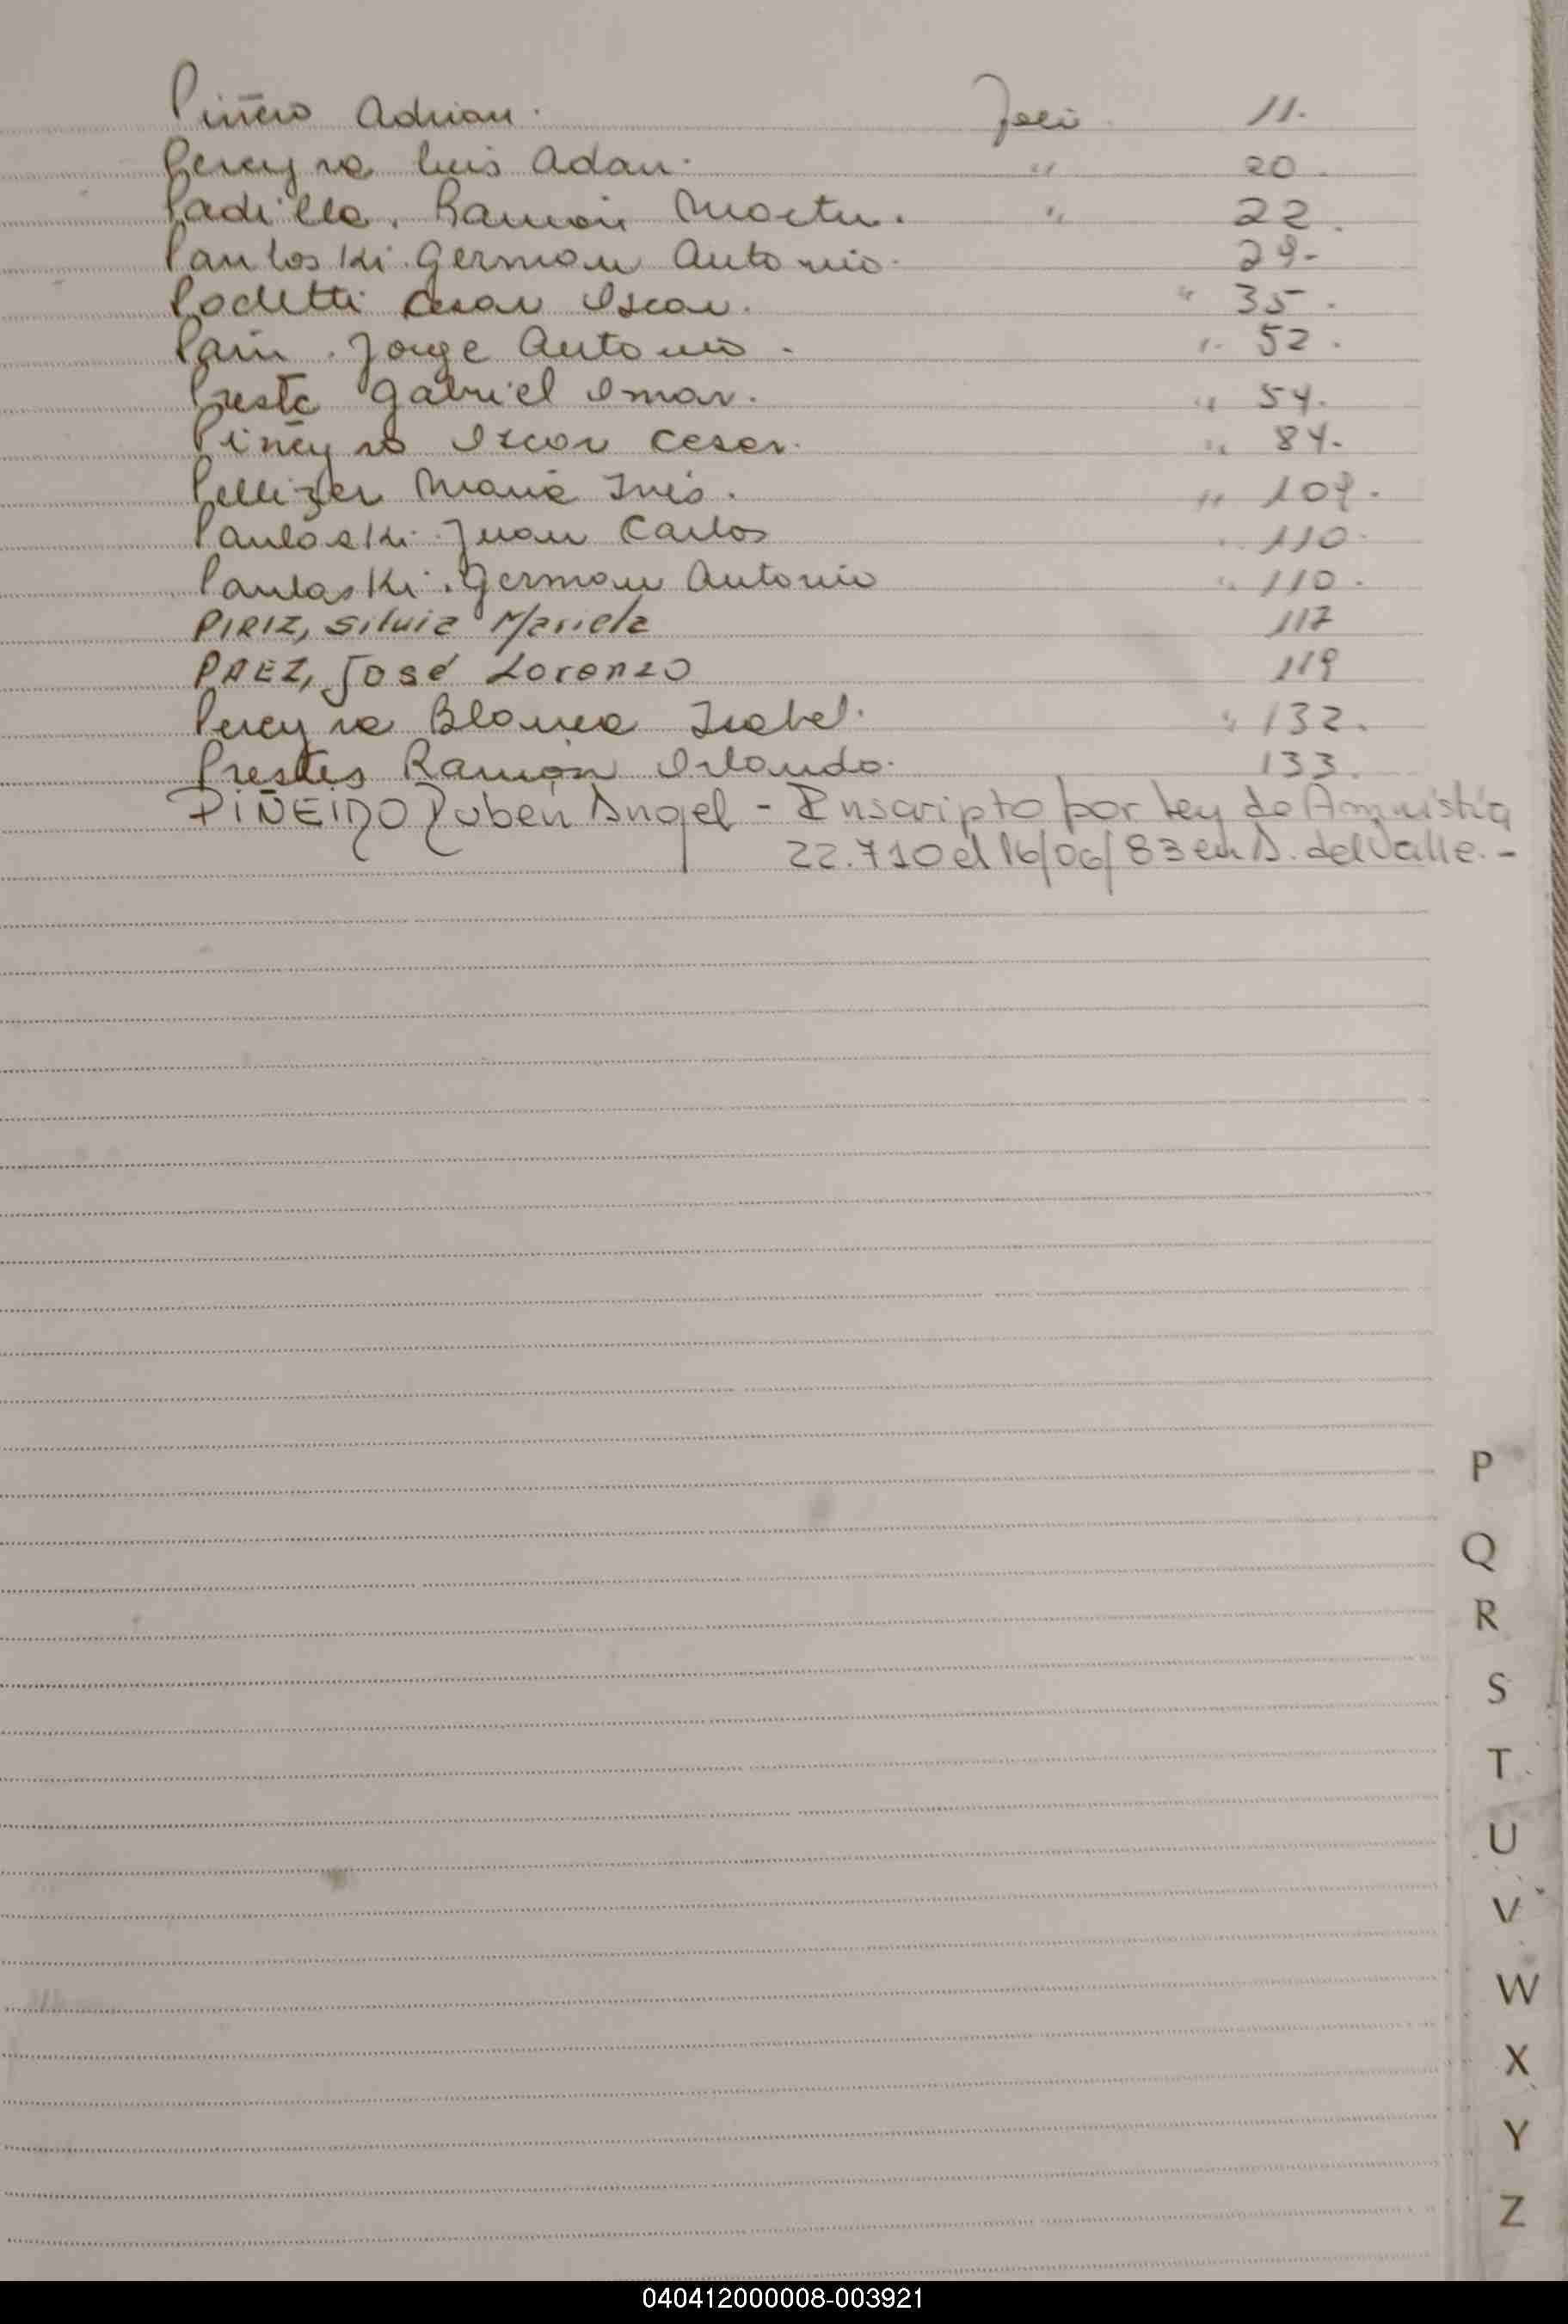 Piñero Adrian. Folio 11.
Pereyra Luis Adan. " 20.
Padilla. Ramón Martin. " 22.
Pauloski. German Antonio. 29-
Podetti Cesar Oscar. " 35.
Pain. Jorge Antonio. " 52.
Preste Gabriel Omar. " 54.
Piñeyro Oscar Cesar. " 84.
Pellizer Maria Inés. " 109.
Pauloski. Juan Carlos " 110.
Pauloski. German Antonio " 110.
PIRIZ, Silvia Mariela 117
PAEZ, José Lorenzo 119
Pereyra Blanca Isabel. " 132.
Prestes Ramón Orlando. 133.
PIÑEIRO Ruben Angel - Inscripto por Ley de Amnistía
22.710 el 16/06/83 en A. del Valle.-
P
Q
R
S
T
U
V
W
X
Y
Z
040412000008-003921